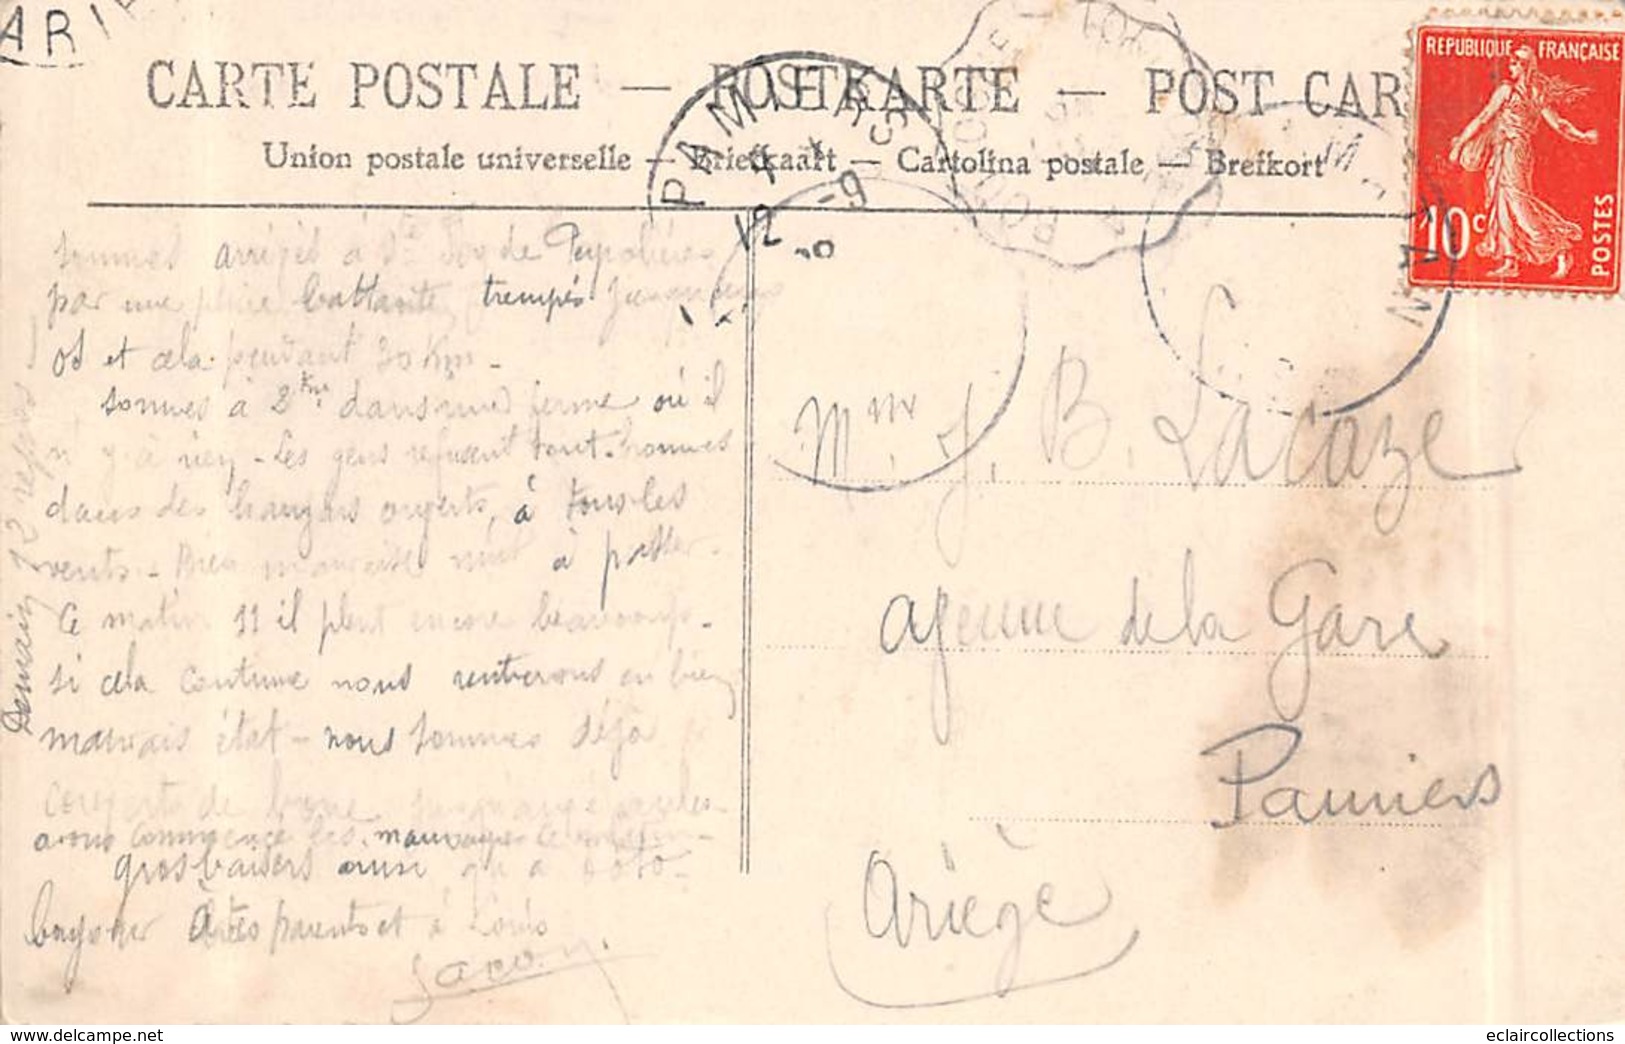 ARIE
CARTE POSTALE — POSTKARTE — POST CAR
Union postale universelle — Briefkaart — Cartolina postale — Brefkort
PAMIERS
12 -9
REPUBLIQUE FRANÇAISE
10c
POSTES
sommes arrivés à Ste Foy de Peyrolières
par une pluie battante, trempés jusqu'aux
os et cela pendant 30 Km -
sommes à 2 Km dans une ferme où il
n'y a rien - Les gens refusent tout. sommes
dans des hangars ouverts, à tous les
vents - Bien mauvaise nuit à passer -
Ce matin 11 il pleut encore beaucoup -
si cela continue nous rentrerons en bien
mauvais état - nous sommes déjà
couverts de boue
avons commencé les mauvais ce matin -
gros baisers ainsi qu'à Toto -
à tes parents et à Louis
Demain 12 repos
Mme J. B. Lacaze
avenue de la Gare
Pamiers
Ariège
eclaircollections
www.delcampe.net